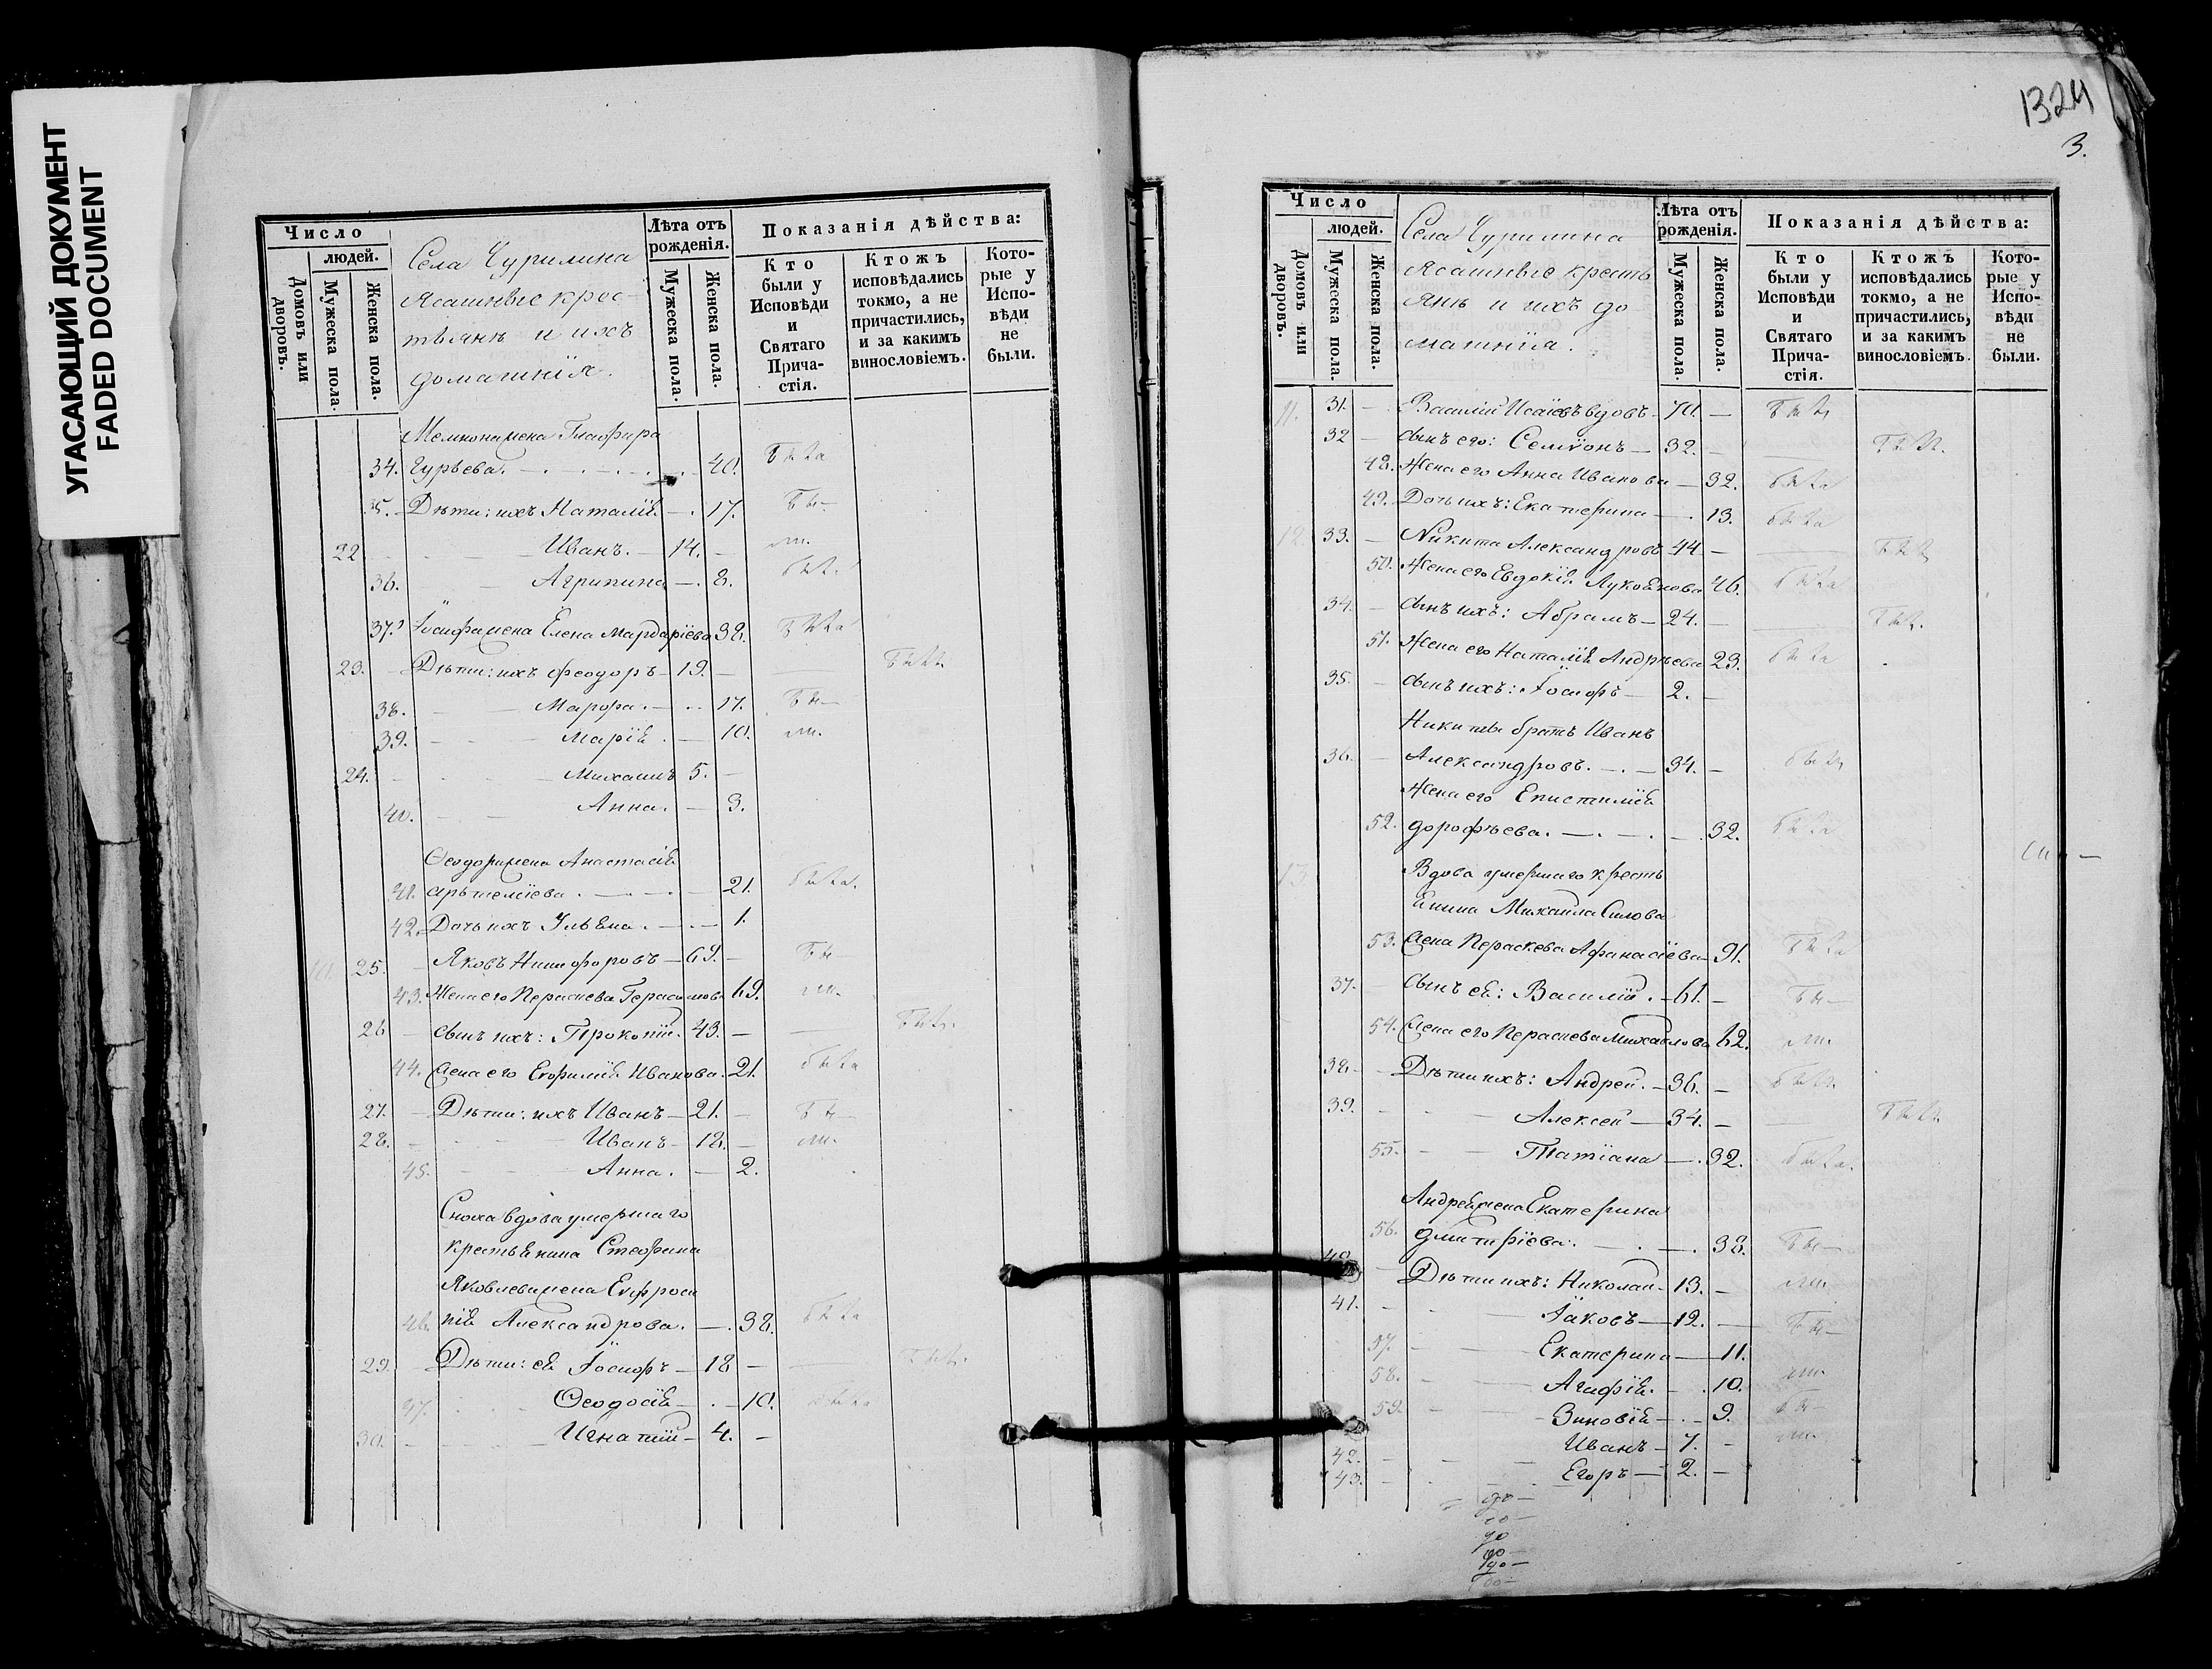 УГАСАЮЩИЙ ДОКУМЕНТ
FADED DOCUMENT
Число
людей.
Домовъ или дворовъ.
Мужеска пола.
Женска пола.
Села Чурилина
Ясашные крес-
тьянѣ и ихъ
домашнія.
Лѣта отъ рожденія.
Мужеска пола.
Женска пола.
Показанія дѣйства:
Кто были у Исповѣди и Святаго Прича-стія.
Ктожъ исповѣдались токмо, а не причастились, и за какимъ винословіемъ.
Кото-рые у Испо-вѣди не были.
жена Глафира
34. Гурьева. 40.
35. Дѣти: ихъ Наталія 17.
22 Иванъ. 14.
36. Агрипина 8.
37. Іосифа жена Елена Мардаріева 38.
23. Дѣти: ихъ Феодоръ 19.
38. Марфа. 17.
39. Марія. 10.
24. Михаилъ 5.
40. Анна. 3.
Ѳеодора жена Анастасія
41. Арьтеміева. 21.
42. Дочь ихъ Ульяна. 1.
10. 25. Яковъ Никифоровъ 69.
43. Жена его Параскева Герасимова 69.
26 сынъ ихъ: Прокопій. 43.
44. Жена его Евфимія Иванова. 21.
27. Дѣти: ихъ Иванъ 21.
28. Иванъ 18.
45. Анна. 2.
Сноха вдова умершаго
крестьянина Стефана
Яковлева жена Ефроси
46. нія Александрова. 38.
29. Дѣти: ея Іосифъ 18
47. Ѳеодосія 10.
30. Игнатій 4.
1324
3.
Число
людей.
Домовъ или дворовъ.
Мужеска пола.
Женска пола.
Села Чурилина
Ясашные кресть
янѣ и ихъ до
машнія.
Лѣта отъ рожденія.
Мужеска пола.
Женска пола.
Показанія дѣйства:
Кто были у Исповѣди и Святаго Прича-стія.
Ктожъ исповѣдались токмо, а не причастились, и за какимъ винословіемъ.
Кото-рые у Испо-вѣди не были.
11. 31. Василій Исаевъ вдовъ 70.
32 сынъ его: Семѵонъ 32.
48. Жена его Анна Иванова 32.
49. Дочь ихъ: Екатерина 13.
12. 33. Никита Александровъ 44
50. Жена его Евдокія Лукоянова 46.
34. сынъ ихъ: Абрамъ 24.
51. Жена его Наталія Андрѣева 23.
35. сынъ ихъ: Іосифъ 2.
Никиты братъ Иванъ
36. Александровъ. 34.
Жена его Епистимія
52. Дорофѣева. 32.
13 Вдова умершаго кресть
янина Михаила Силова
53. жена Пераскева Афанасіева 91.
37. сынъ ея: Василій. 61.
54. Жена его Параскева Михайлова 62.
38. Дѣти ихъ: Андрей. 36.
39. Алексей 34.
55. Татіана 32.
Андрея жена Екатерина
56. Дмитріева. 38.
40 Дѣти ихъ: Николай 13.
41. Іаковъ 12.
57. Екатерина 11.
58. Агафія. 10.
59. Зиновія 9.
42. Иванъ 7.
43. Егоръ 2.